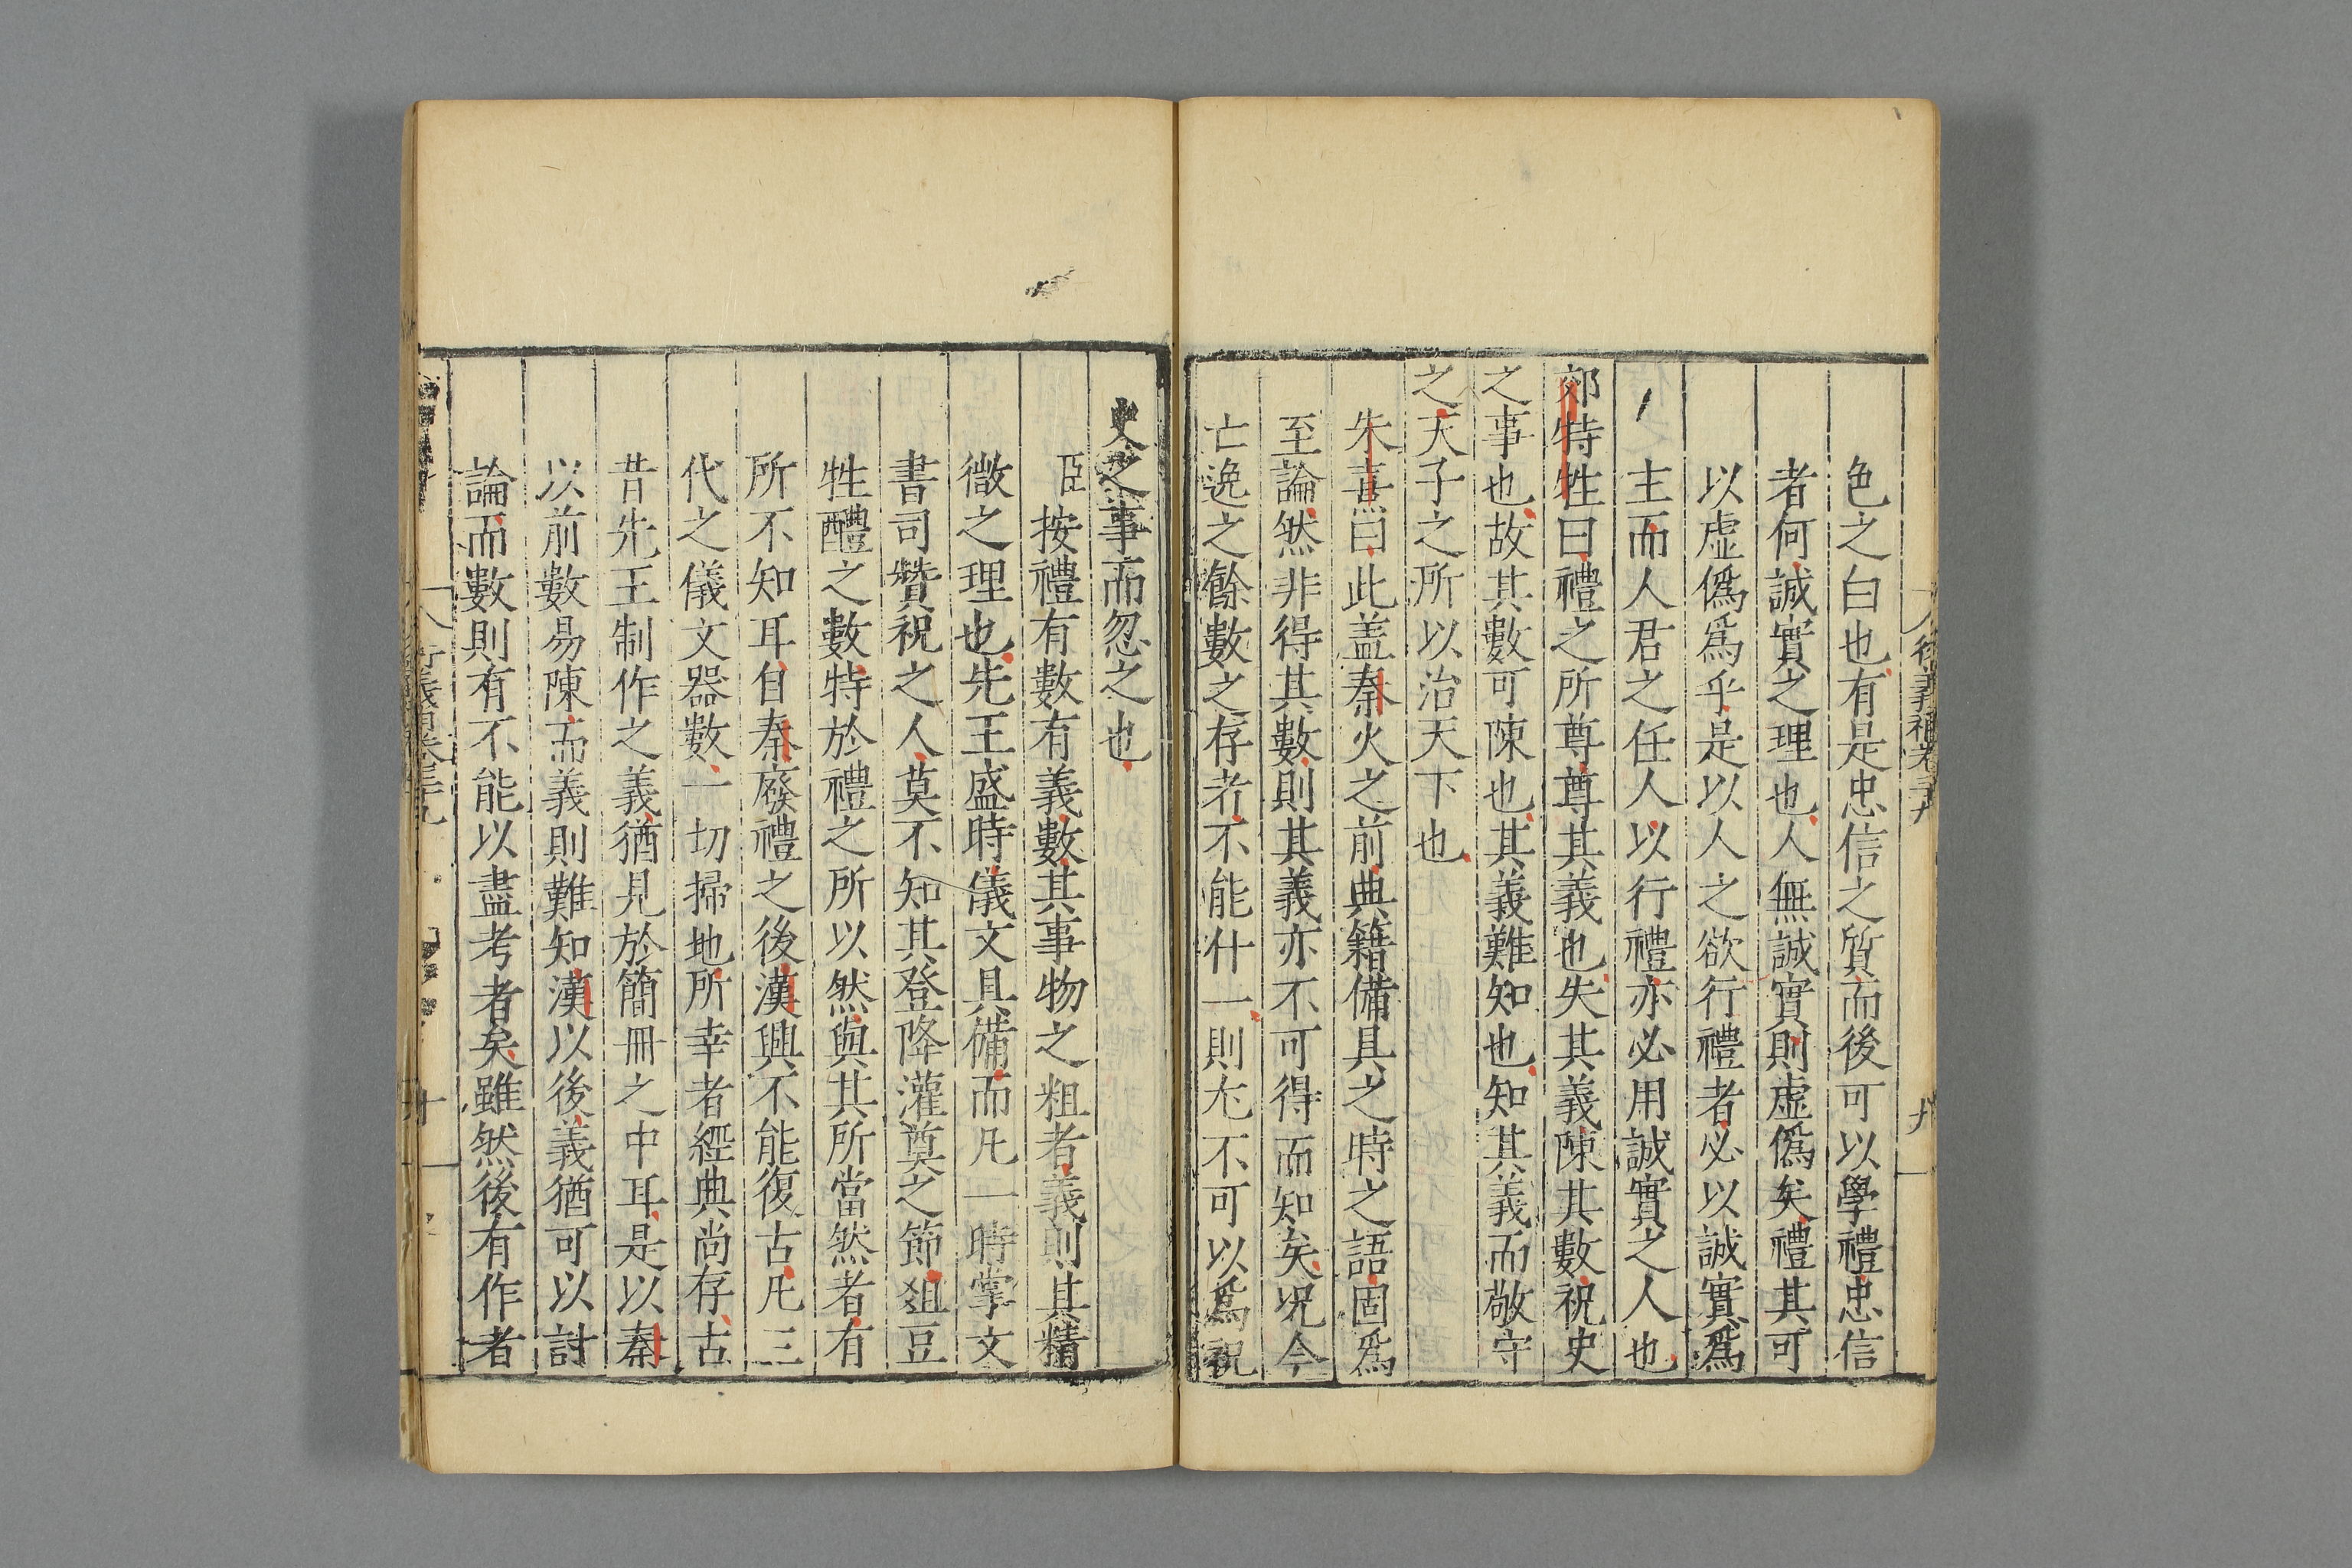 色之白也有是忠信之質而後可以學禮忠信
者何誠實之理也人無誠實則虛僞矣禮其可
以虛僞爲乎是以人之欲行禮者必以誠實爲
主而人君之任人以行禮亦必用誠實之人也
郊特牲曰禮之所尊尊其義也失其義陳其數祝史
之事也故其數可陳也其義難知也知其義而敬守
之天子之所以治天下也
朱熹曰此盖秦火之前典籍備具之時之語固爲
至論然非得其數則其義亦不可得而知矣况今
亡逸之餘數之存者不能什一則尤不可以爲祝
史之事而忽之也
臣按禮有數有義數其事物之粗者義則其精
微之理也先王盛時儀文具備而凡一時掌文
書司贊祝之人莫不知其登降灌奠之節俎豆
牲醴之數特於禮之所以然與其所當然者有
所不知耳自秦廢禮之後漢興不能復古凡三
代之儀文器數一切掃地所幸者經典尚存古
昔先王制作之義猶見於簡冊之中耳是以秦
以前數易陳而義則難知漢以後義猶可以討
論而數則有不能以盡考者矣雖然後有作者